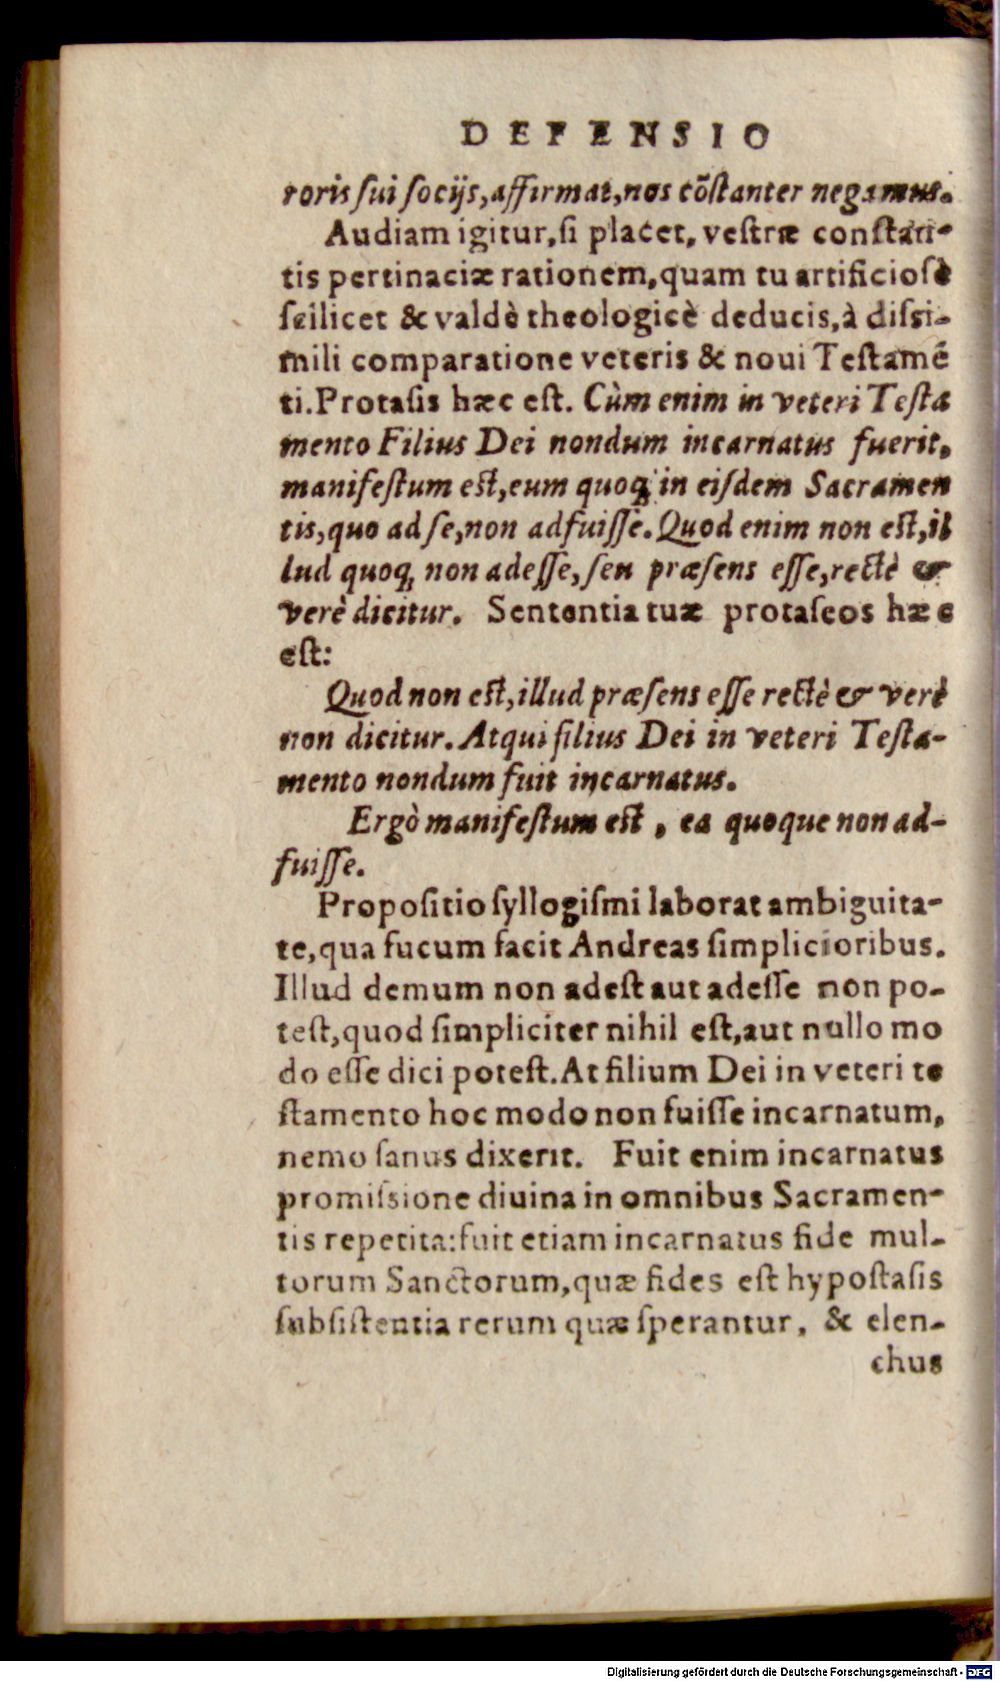 DEFENSIO
roris ſui ſocijs, affirmat, nos cõſtanter negamus.
Audiam igitur, ſi placet, veſtræ conſtan-
tis pertinaciæ rationem, quam tu artificioſè
ſcilicet & valdè theologicè deducis, à diſsi-
mili comparatione veteris & noui Teſtamẽ
ti. Protaſis hæc eſt. Cùm enim in veteri Teſta
mento Filius Dei nondum incarnatus fuerit,
manifeſtum eſt, eum quoq; in eiſdem Sacramen
tis, quo ad ſe, non adfuiſſe. Quod enim non eſt, il
lud quoq; non adeſſe, ſeu præſens eſſe, rectè &
verè dicitur. Sententia tuæ protaſeos hæc
eſt:
Quod non eſt, illud præſens eſſe rectè & verè
non dicitur. Atqui filius Dei in veteri Teſta-
mento nondum fuit incarnatus.
Ergò manifeſtum eſt, ea quoque non ad-
fuiſſe.
Propoſitio ſyllogiſmi laborat ambiguita-
te, qua fucum facit Andreas ſimplicioribus.
Illud demum non adeſt aut adeſſe non po-
teſt, quod ſimpliciter nihil eſt, aut nullo mo
do eſſe dici poteſt. At filium Dei in veteri te
ſtamento hoc modo non fuiſſe incarnatum,
nemo ſanus dixerit. Fuit enim incarnatus
promiſsione diuina in omnibus Sacramen-
tis repetita: fuit etiam incarnatus fide mul-
torum Sanctorum, quæ fides eſt hypoſtaſis
ſubſiſtentia rerum quæ ſperantur, & elen-
chus
Digitalisierung gefördert durch die Deutsche Forschungsgemeinschaft - DFG